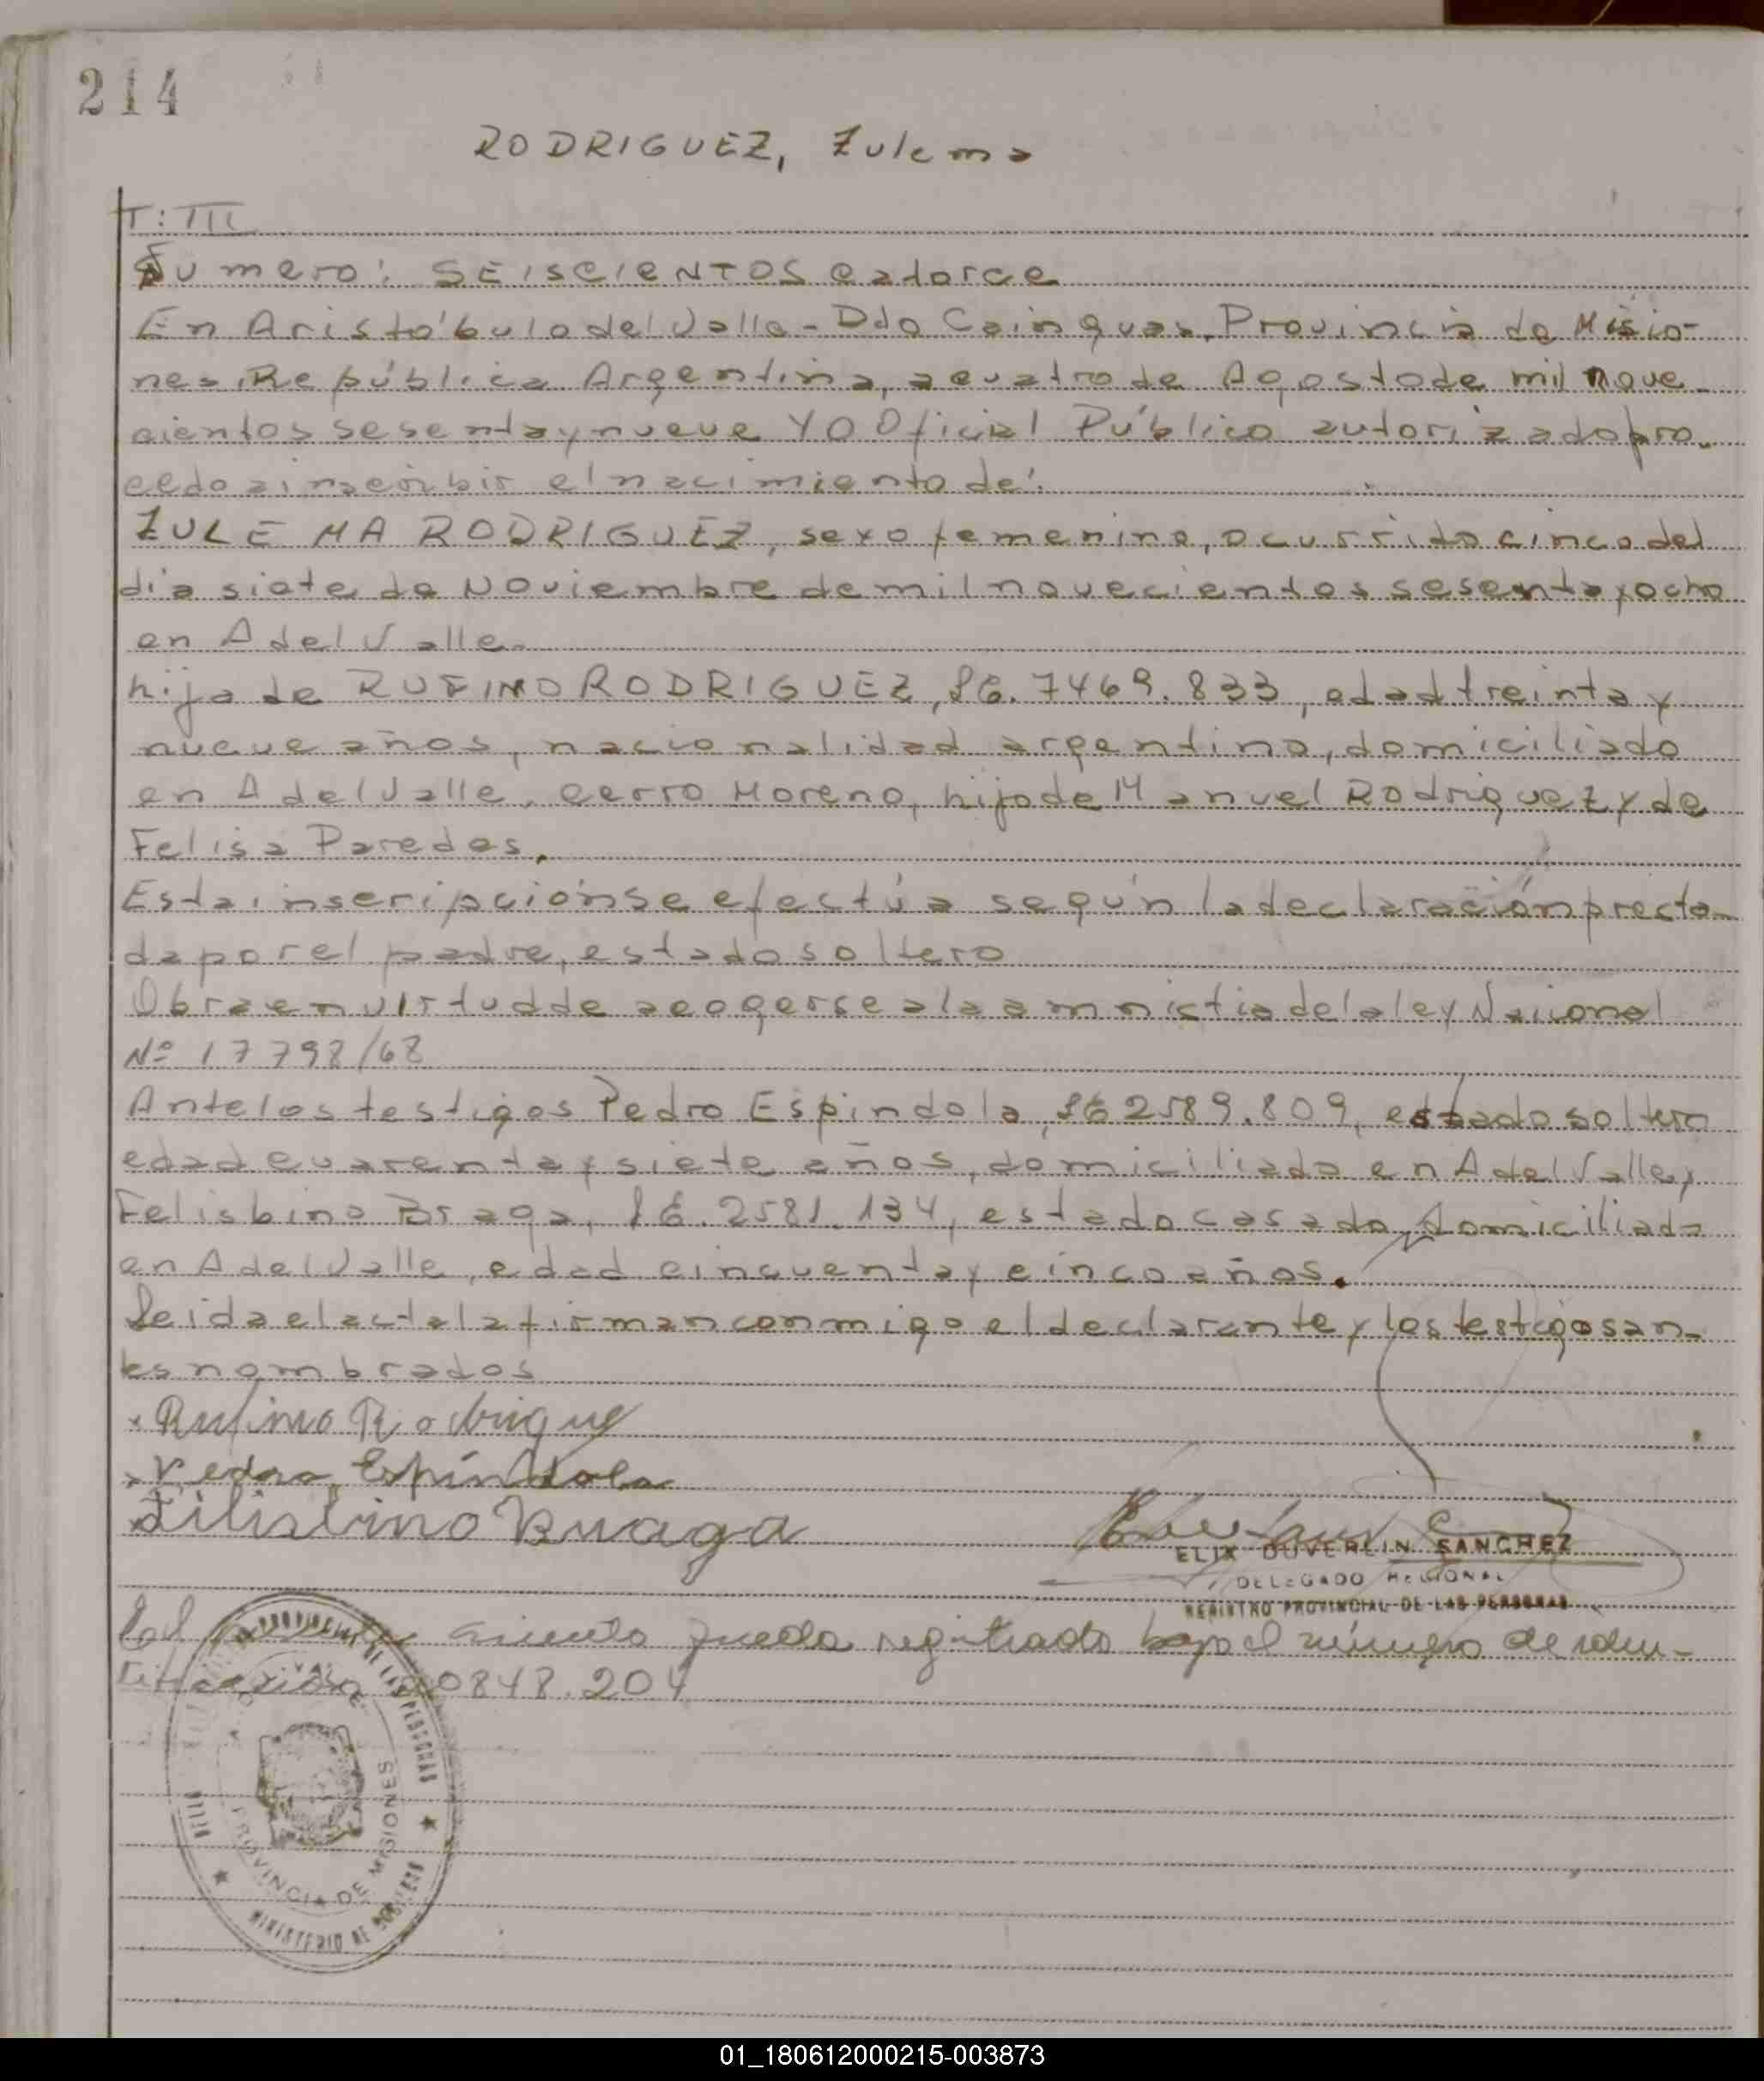 214
RODRIGUEZ, Zulema
T: III
Número: SEISCIENTOS catorce
En Aristóbulo del Valle - Dto Cainguas, Provincia de Misio-
nes, República Argentina, a cuatro de Agosto de mil nove-
cientos sesenta y nueve YO Oficial Público autorizado pro-
cedo a inscribir el nacimiento de:
ZULEMA RODRIGUEZ, sexo femenino, ocurrido cinco del
día siete de Noviembre de mil novecientos sesenta y ocho
en A del Valle.
hija de RUFINO RODRIGUEZ, LE. 7469.833, edad treinta y
nueve años, nacionalidad argentino, domiciliado
en A del Valle, cerro Moreno, hijo de Manuel Rodriguez y de
Felisa Paredes.
Esta inscripción se efectúa según la declaración presta-
da por el padre, estado soltero
Obra en virtud de acogerse a la amnistia de la ley Nacional
Nº 17798/68
Ante los testigos Pedro Espindola, LE 2589.809, estado soltero
edad cuarenta y siete años, domiciliado en A del Valle y
Felisbino Braga, LE. 2581.134, estado casado, domiciliado
en A del Valle, edad cincuenta y cinco años.
Leida el acta la firman conmigo el declarante y los testigos an-
tes nombrados
Rufino Rodrigue
Pedro Espíndola
Filisbino Braga
ELIX DUVERLIN SANCHEZ
DELEGADO REGIONAL
REGISTRO PROVINCIAL DE LAS PERSONAS
queda registrado bajo el número de iden-
tificación 20848.204
PROVINCIAL DE LAS PERSONAS
PROVINCIA DE MISIONES
MINISTERIO DE GOBIERNO
01_180612000215-003873